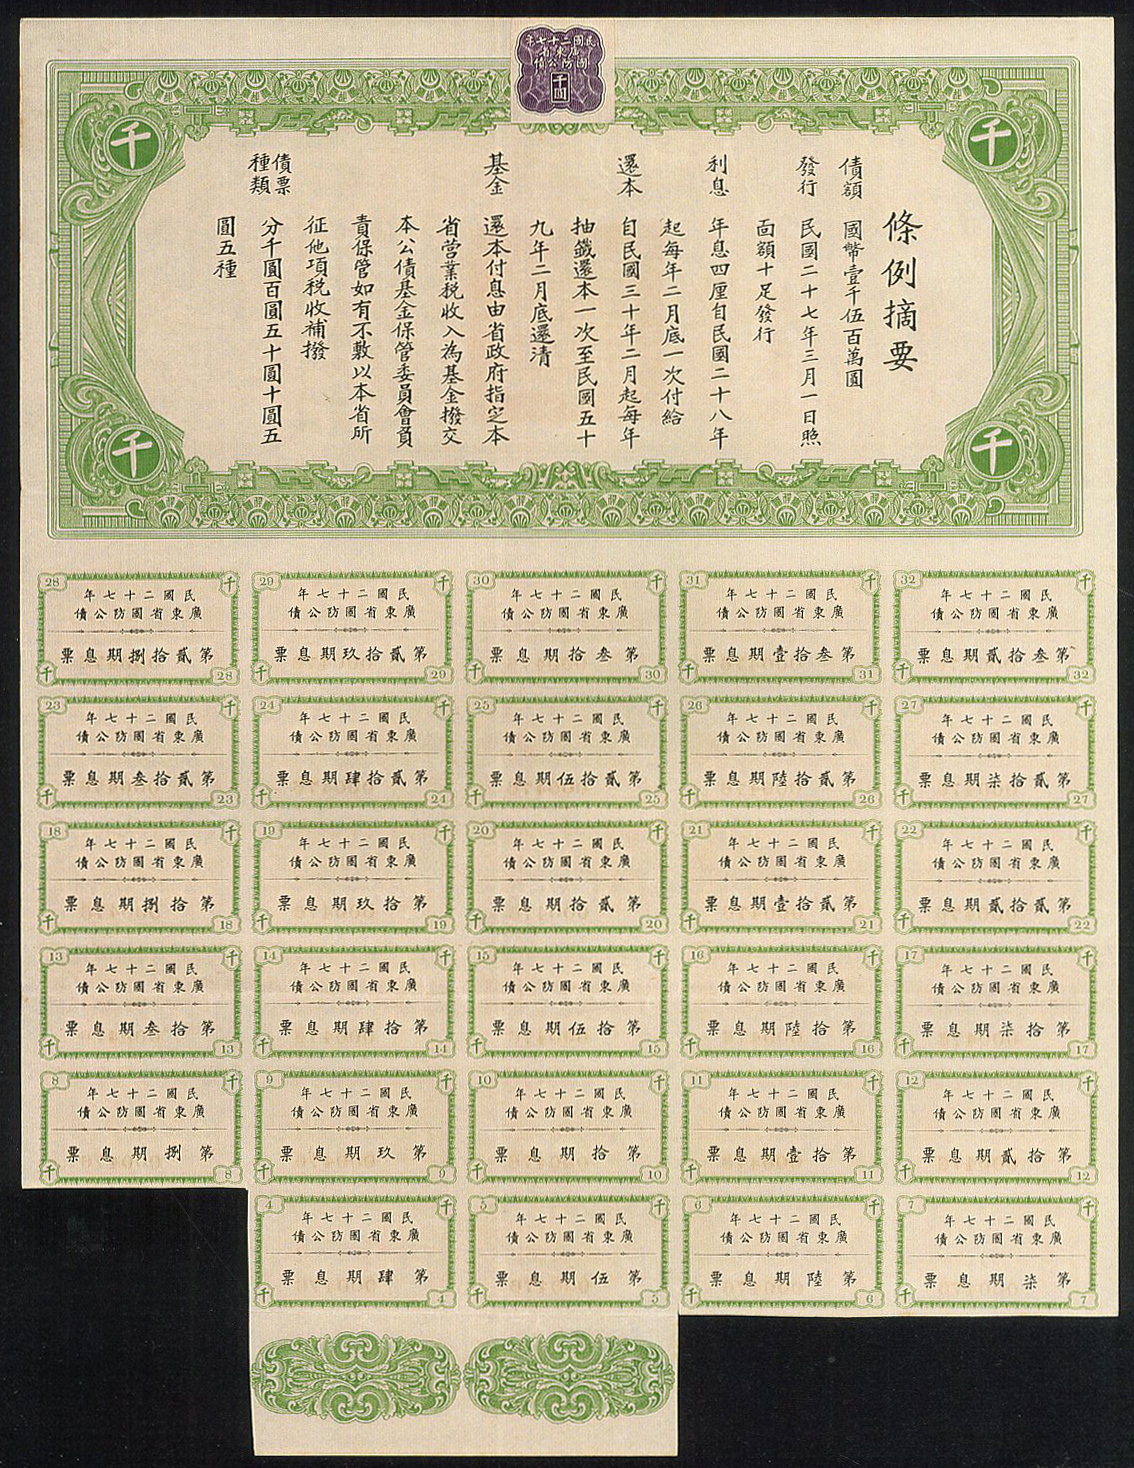 民國二十七年
廣東省
國防公債
千圓
千
千
千
千
條例摘要
債額 國幣壹千伍百萬圓
發行 民國二十七年三月一日照
面額十足發行
利息 年息四厘自民國二十八年
起每年二月底一次付給
還本 自民國三十年二月起每年
抽籤還本一次至民國五十
九年二月底還清
基金 還本付息由省政府指定本
省營業稅收入為基金撥交
本公債基金保管委員會負
責保管如有不敷以本省所
征他項稅收補撥
債票種類 分千圓百圓五十圓十圓五
圓五種
28 千
民國二十七年
廣東省國防公債
第貳拾捌期息票
千 28
29 千
民國二十七年
廣東省國防公債
第貳拾玖期息票
千 29
30 千
民國二十七年
廣東省國防公債
第叁拾期息票
千 30
31 千
民國二十七年
廣東省國防公債
第叁拾壹期息票
千 31
32 千
民國二十七年
廣東省國防公債
第叁拾貳期息票
千 32
23 千
民國二十七年
廣東省國防公債
第貳拾叁期息票
千 23
24 千
民國二十七年
廣東省國防公債
第貳拾肆期息票
千 24
25 千
民國二十七年
廣東省國防公債
第貳拾伍期息票
千 25
26 千
民國二十七年
廣東省國防公債
第貳拾陸期息票
千 26
27 千
民國二十七年
廣東省國防公債
第貳拾柒期息票
千 27
18 千
民國二十七年
廣東省國防公債
第拾捌期息票
千 18
19 千
民國二十七年
廣東省國防公債
第拾玖期息票
千 19
20 千
民國二十七年
廣東省國防公債
第貳拾期息票
千 20
21 千
民國二十七年
廣東省國防公債
第貳拾壹期息票
千 21
22 千
民國二十七年
廣東省國防公債
第貳拾貳期息票
千 22
13 千
民國二十七年
廣東省國防公債
第拾叁期息票
千 13
14 千
民國二十七年
廣東省國防公債
第拾肆期息票
千 14
15 千
民國二十七年
廣東省國防公債
第拾伍期息票
千 15
16 千
民國二十七年
廣東省國防公債
第拾陸期息票
千 16
17 千
民國二十七年
廣東省國防公債
第拾柒期息票
千 17
8 千
民國二十七年
廣東省國防公債
第捌期息票
千 8
9 千
民國二十七年
廣東省國防公債
第玖期息票
千 9
10 千
民國二十七年
廣東省國防公債
第拾期息票
千 10
11 千
民國二十七年
廣東省國防公債
第拾壹期息票
千 11
12 千
民國二十七年
廣東省國防公債
第拾貳期息票
千 12
4 千
民國二十七年
廣東省國防公債
第肆期息票
千 4
5 千
民國二十七年
廣東省國防公債
第伍期息票
千 5
6 千
民國二十七年
廣東省國防公債
第陸期息票
千 6
7 千
民國二十七年
廣東省國防公債
第柒期息票
千 7